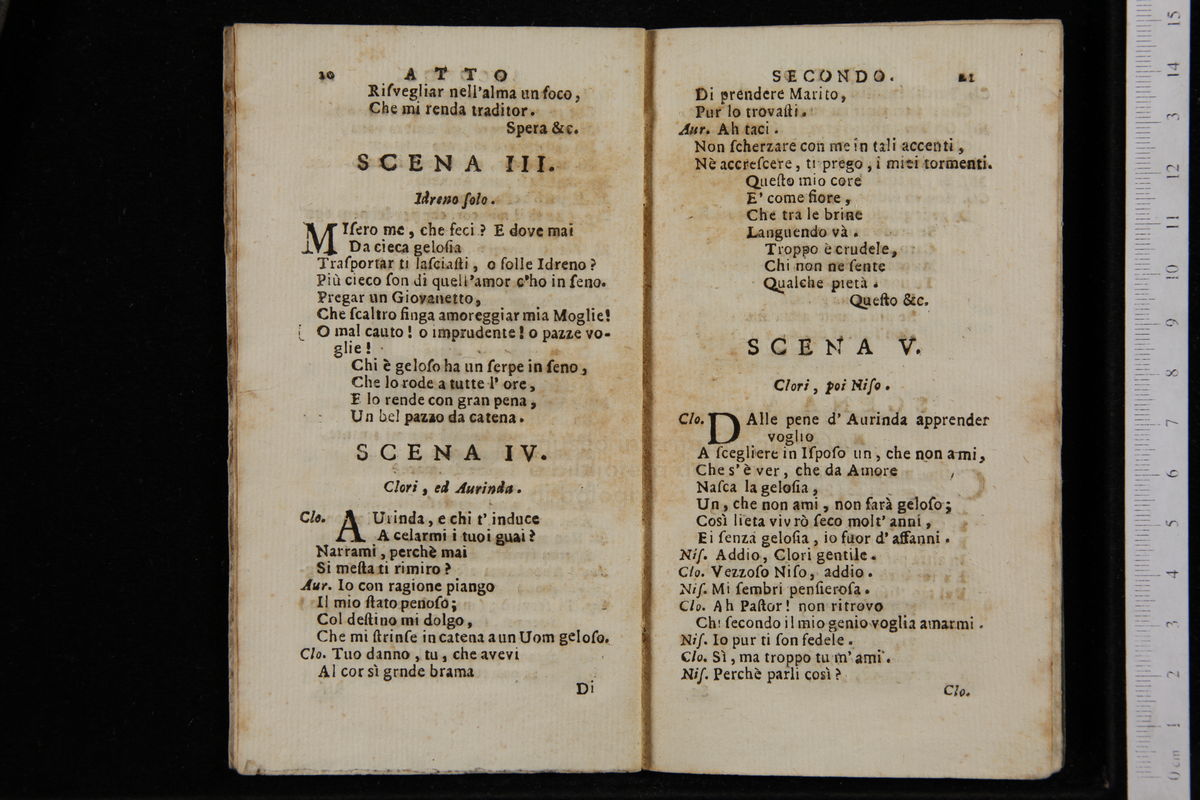 20 ATTO
Riſvegliar nell'alma un foco,
Che mi renda traditor.
Spera &c.
SCENA III.
Idreno ſolo.
MIſero me, che feci? E dove mai
Da cieca geloſia
Traſportar ti laſciaſti, o folle Idreno?
Più cieco ſon di quell'amor c'ho in ſeno.
Pregar un Giovanetto,
Che ſcaltro finga amoreggiar mia Moglie!
O mal cauto! o imprudente! o pazze vo-
glie!
Chi è geloſo ha un ſerpe in ſeno,
Che lo rode a tutte l' ore,
E lo rende con gran pena,
Un bel pazzo da catena.
SCENA IV.
Clori, ed Aurinda.
Clo. AUrinda, e chi t' induce
A celarmi i tuoi guai?
Narrami, perchè mai
Si meſta ti rimiro?
Aur. Io con ragione piango
Il mio ſtato penoſo;
Col deſtino mi dolgo,
Che mi ſtrinſe in catena a un Uom geloſo.
Clo. Tuo danno, tu, che avevi
Al cor sì grnde brama
Di
SECONDO. 21
Di prendere Marito,
Pur lo trovaſti.
Aur. Ah taci.
Non ſcherzare con me in tali accenti,
Nè accreſcere, ti prego, i miei tormenti.
Queſto mio core
E' come fiore,
Che tra le brine
Languendo và.
Troppo è crudele,
Chi non ne ſente
Qualche pietà.
Queſto &c.
SCENA V.
Clori, poi Niſo.
Clo. DAlle pene d' Aurinda apprender
voglio
A ſcegliere in Iſpoſo un, che non ami,
Che s' è ver, che da Amore
Naſca la geloſia,
Un, che non ami, non farà geloſo;
Così lieta vivrò ſeco molt' anni,
Ei ſenza geloſia, io fuor d' affanni.
Niſ. Addio, Clori gentile.
Clo. Vezzoſo Niſo, addio.
Niſ. Mi ſembri penſieroſa.
Clo. Ah Paſtor! non ritrovo
Chi ſecondo il mio genio voglia amarmi.
Niſ. Io pur ti ſon fedele.
Clo. Sì, ma troppo tu m' ami.
Niſ. Perchè parli così?
Clo.
0 cm 1 2 3 4 5 6 7 8 9 10 11 12 3 14 15